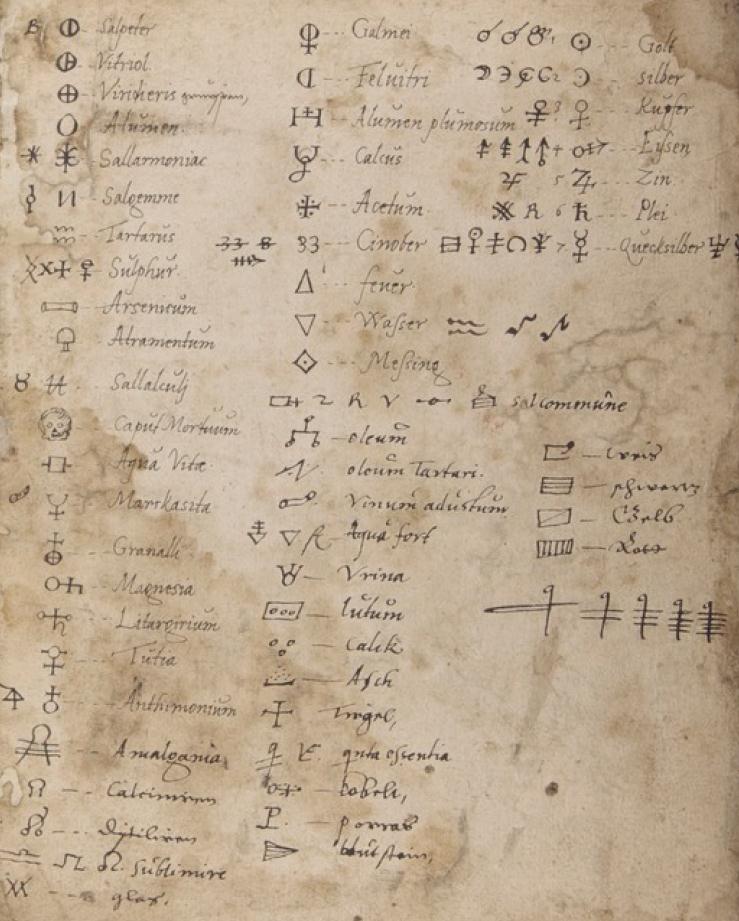 Salpeter
Vitriol
Viride eris
Alumen
Sallarmoniac
Salgemme
Tartarus
Sulphur
Arsenicum
Atramentum
Sallalculj
Caput Mortuum
Aqua Vitæ
Markasita
Granalli
Magnesia
Litargirium
Tutia
Anthimonium
Amalgania
Calciniren
Distiliren
Sublimire
glas.
Galmei
Alumen plumosum
Calcus
Acetum
Cinober
feuer
Wasser
Messing
sal commune
oleum
oleum Tartari.
Vinum adustum
Aqua fort
Vrina
lutum
Calik
Asch
Tigel,
qnta essentia
kobelt,
blutstein,
Golt
silber
Kupfer
Eÿsen
Zin
Pleï
Quecksilber
weis
schwartz
Gelb
Rott